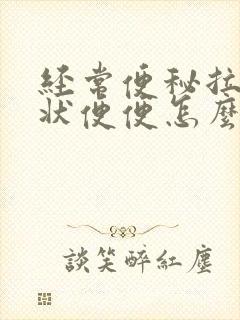 經常便秘拉
狀便便怎麼
談笑醉紅塵